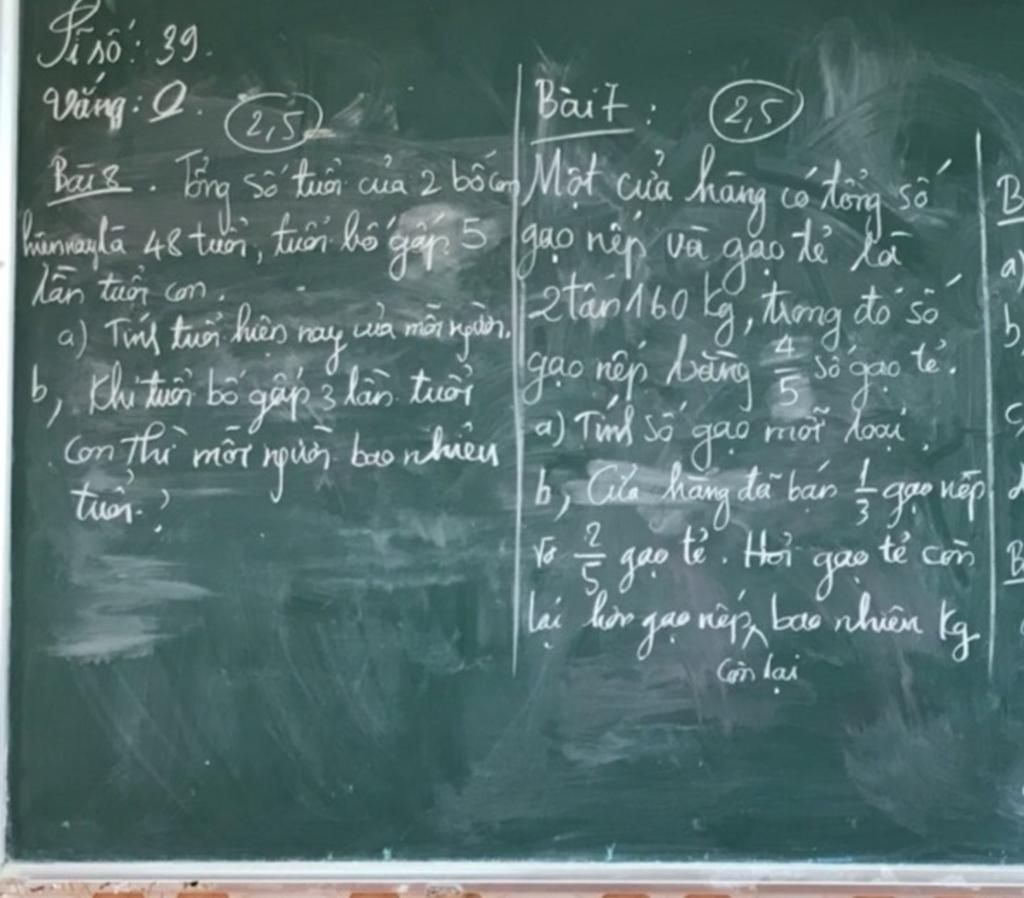 Sĩ số: 39.
Vắng: 0.
2,5
Bài 8. Tổng số tuổi của 2 bố con
hiện nay là 48 tuổi, tuổi bố gấp 5
lần tuổi con.
a) Tính tuổi hiện nay của mỗi người.
b, Khi tuổi bố gấp 3 lần tuổi
con thì mỗi người bao nhiêu
tuổi?
Bài 7:
2,5
Một cửa hàng có tổng số
gạo nếp và gạo tẻ là
2 tấn 160 kg, trong đó số
gạo nếp bằng 4/5 số gạo tẻ.
a) Tính số gạo mỗi loại.
b, Cửa hàng đã bán 1/3 gạo nếp
và 2/5 gạo tẻ. Hỏi gạo tẻ còn
lại hơn gạo nếp ^ bao nhiêu kg
còn lại
B
a)
b,
c,
B